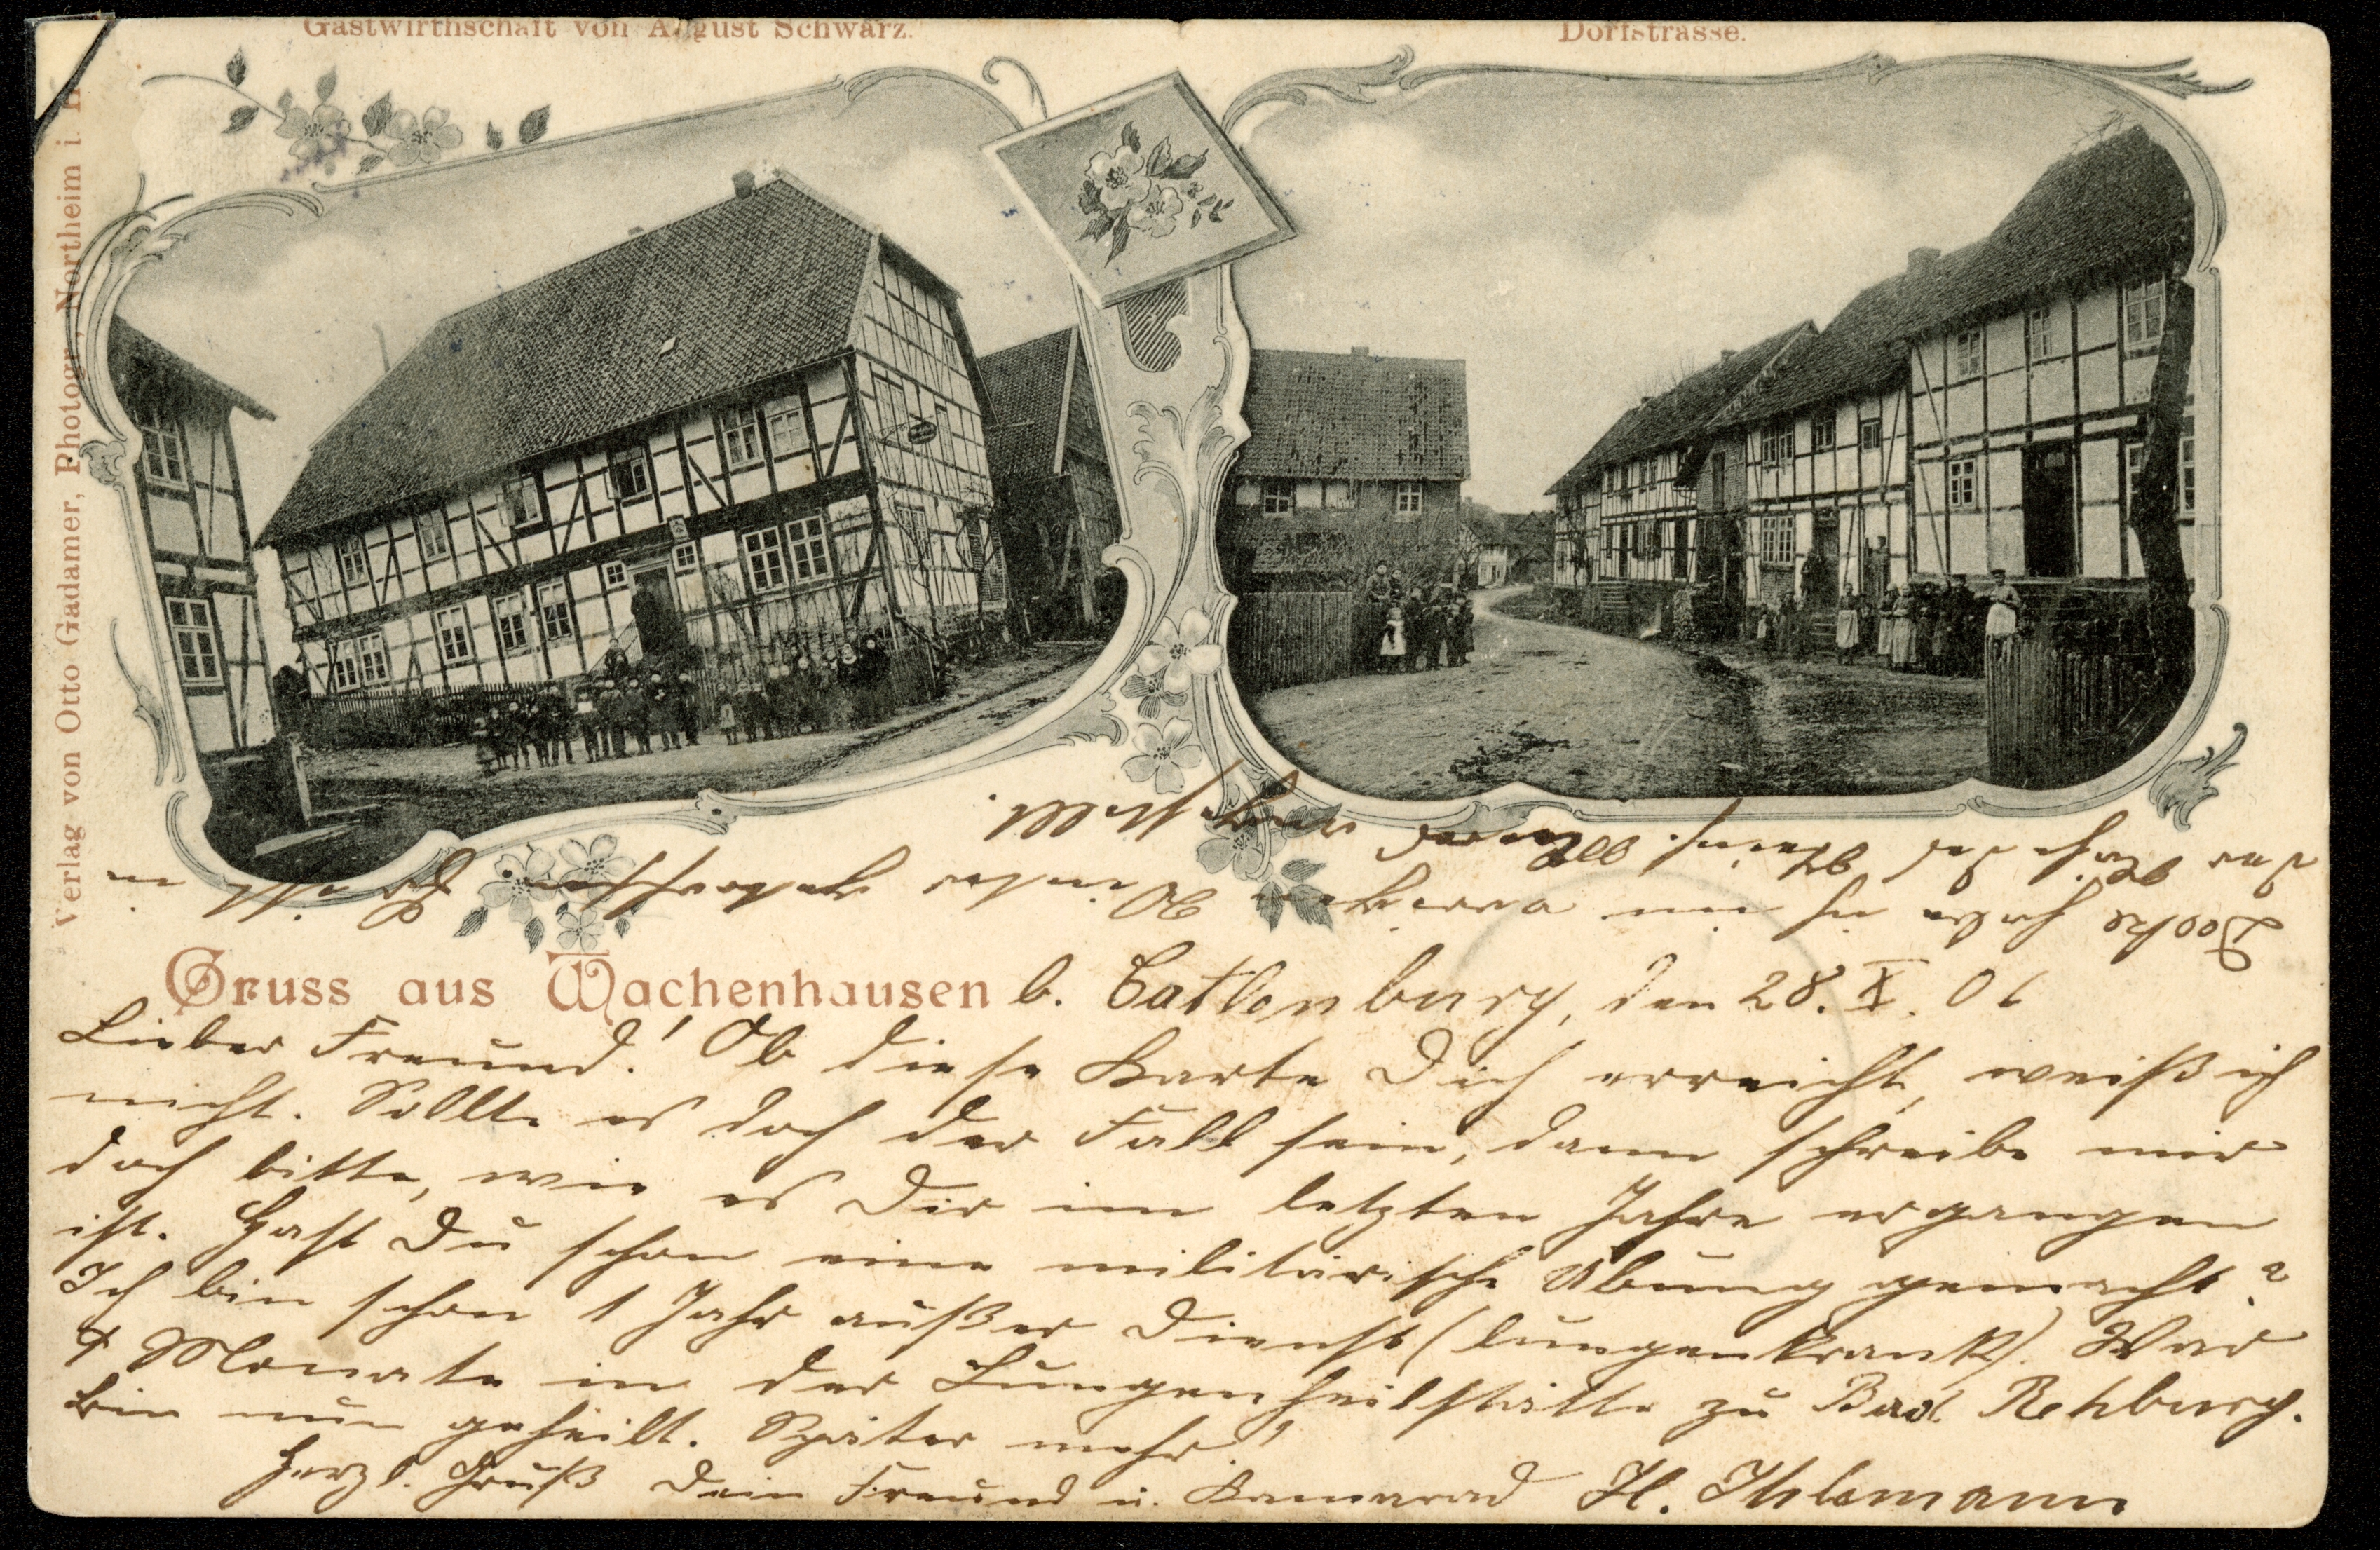 Gastwirthschaft von August Schwarz.
Dorfstrasse.
Verlag von Otto Gadamer, Photogr., Northeim i. H
Gruss aus Wachenhausen b. Catlenburg, den 28. X. 01
Lieber Freund! Ob diese Karte Dich erreicht, weiß ich
nicht. Sollte es doch der Fall sein, dann schreibe mir
doch bitte, wie es Dir im letzten Jahre ergangen
ist. Hast Du schon eine militärische Übung gemacht?
Ich bin schon 1 Jahr außer Dienst (lungenkrank). War
4 Monate in der Lungenheilstätte zu Bad Rehburg.
Bin nun geheilt. Später mehr!
Herzl. Gruß Dein Freund u. Kamerad H. Ihlemann
habe ich im vorigen Winter